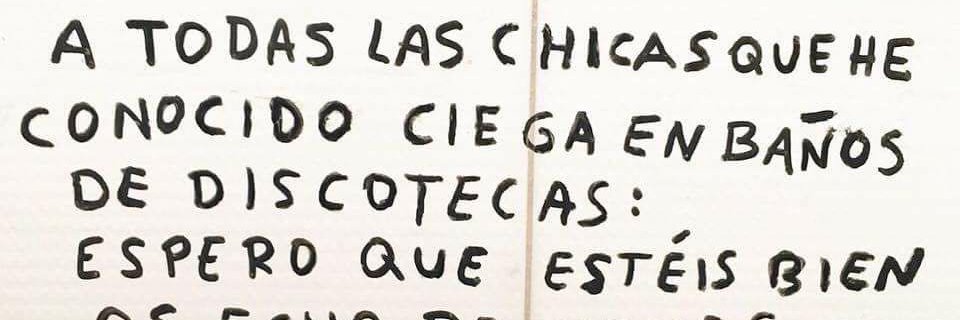 A TODAS LAS CHICAS QUE HE
CONOCIDO CIEGA EN BAÑOS
DE DISCOTECAS:
ESPERO QUE ESTÉIS BIEN
OS ECHO DE